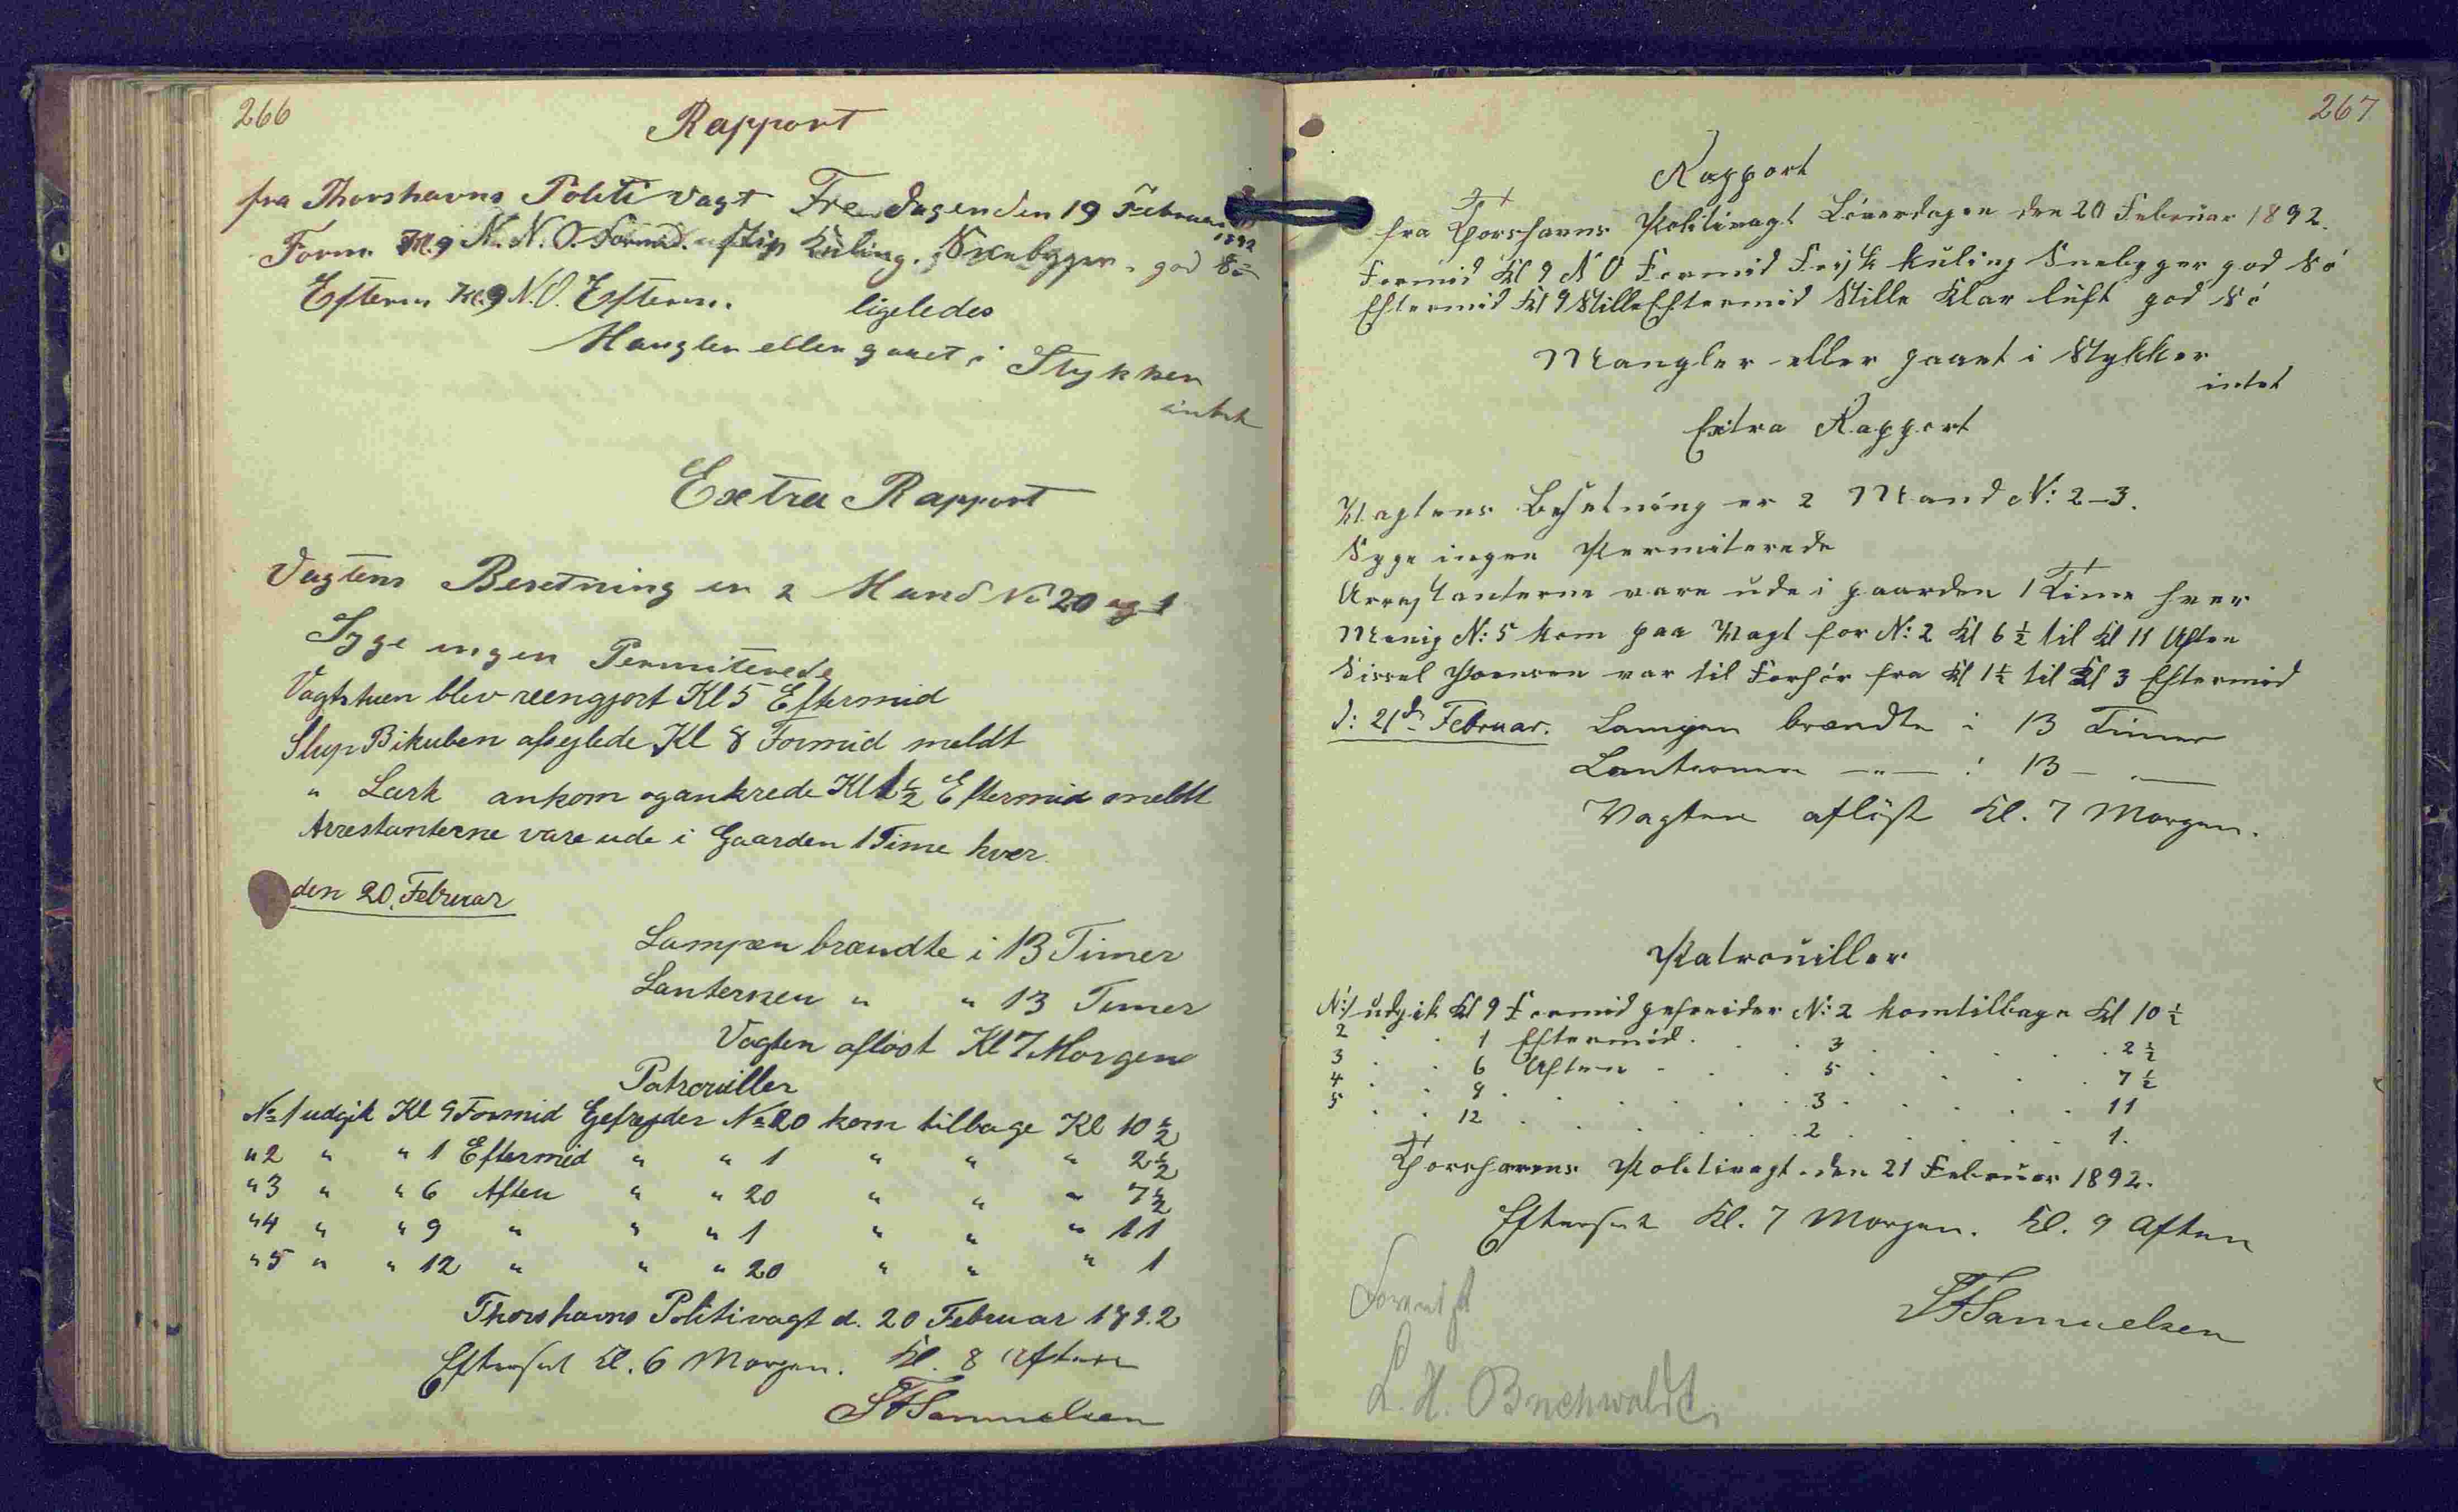 266
Rapport
fra Thorshavns Politi vagt Fredagen den 19 Februar 1892
Form Kl. 9 N.N.O. Formid. stip Kuling. Snebyger. god Sö
Efterm Kl. 9 N.O. Efterm. ligeledes
Mangler eller gaaet i Stykker
intet
Extra Rapport
Vagtens Besetning er 2 Mand No 20 og 1
Syge ingen Permiterede
Vagtstuen blev reengjort Kl 5 Eftermid
Slup Bikuben afseglede Kl 8 Formid meldt
" Lark ankom og ankrede Kl 1½ Eftermid meldt
Arrestanterne vare ude i Gaarden 1 Time hver
den 20. Februar
Lampen brændte i 13 Timer
Lanternen " " 13 Timer
Vagten aflöst Kl 7 Morgen
Patrouiller
No 1 udgik Kl 9 Formid Gefrejder No 20 kom tilbage Kl 10½
" 2 " " 1 Eftermid " " 1 " " " 2½
" 3 " " 6 Aften " " 20 " " " 7½
" 4 " " 9 " " " 1 " " " 11
" 5 " " 12 " " " 20 " " " 1
Thorshavns Politivagt d. 20 Februar 1892
Efterset Kl. 6 Morgen. Kl. 8 Aften
Samuelsen
267
Rapport
fra Thorshavns Politivagt Löverdagen den 20 Februar 1892.
Formid Kl 9 N O Formid Frisk Kuling Snebyger god Sö
Eftermid Kl 9 Stille Eftermid Stille Klar luft god Sö
Mangler eller gaaet i Stykker
intet
Extra Rapport
Vagtens Besetning er 2 Mand N: 2–3.
Syge ingen Permiterede
Arrestanterne vare ude i gaarden 1 Time hver
Menig N: 5 kom paa Vagt for N: 2 Kl 6½ til Kl 11 Aften
Sissel Poulsen var til Forhör fra Kl 1½ til Kl 3 Eftermid
d: 21de Februar. Lampen brændte i 13 Timer
Lanternen —"— : 13 — . —
Vagten aflöst Kl. 7 Morgen.
Patrouiller
N: 1 udgik Kl 9 Formid gefreider N: 2 kom tilbage Kl 10½
2 . . 1 Eftermid . . 3 . . . . 2½
3 . . 6 Aften . . 5 . . . . 7½
4 . . 9 . . . 3 . . . . 11
5 . . 12 . . . 2 . . . . 1.
Thorshavns Politivagt den 21 Februar 1892.
Efterset Kl. 7 Morgen. Kl. 9 Aften
Samuelsen
Forevist
L. H. Buchwaldt.